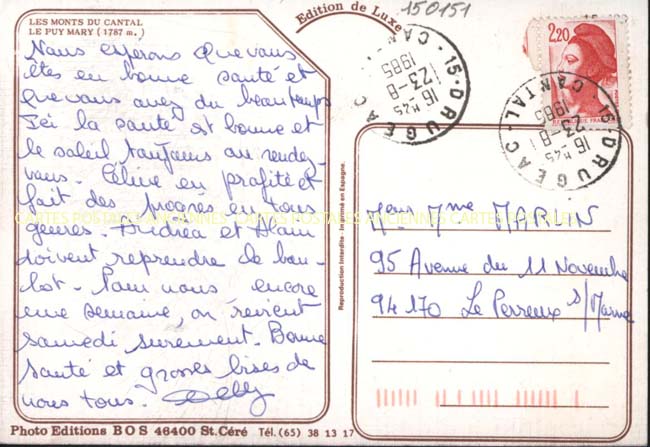 LES MONTS DU CANTAL
LE PUY MARY (1787 m.)
Nous esperons que vous
êtes en bonne santé et
que vous avez du beau temps
Ici la santé est bonne et
le soleil toujours au rendez-
vous. Céline en profite et
fait des progrès en tous
genres. et Alain
doivent reprendre le bou-
lot. Nous encore
une semaine, on revient
samedi surement. Bonne
santé et grosses bises de
nous tous.
Photo Editions BOS 46400 St. Céré Tél. (65) 38 13 17
Edition de Luxe
150151
Reproduction Interdite - Imprimé en Espagne.
15-DRUGEAC
CANTAL
16 H45
23-8
1985
2,20
15-DRUGEAC-
CANTAL
16 H45
23-8
1985
Mme MARLIN
95 Avenue du 11 Novembre
94170 Le Perreux s/Marne
CARTES POSTALES ANCIENNES CARTES POSTALES ANCIENNES CARTES POSTALE